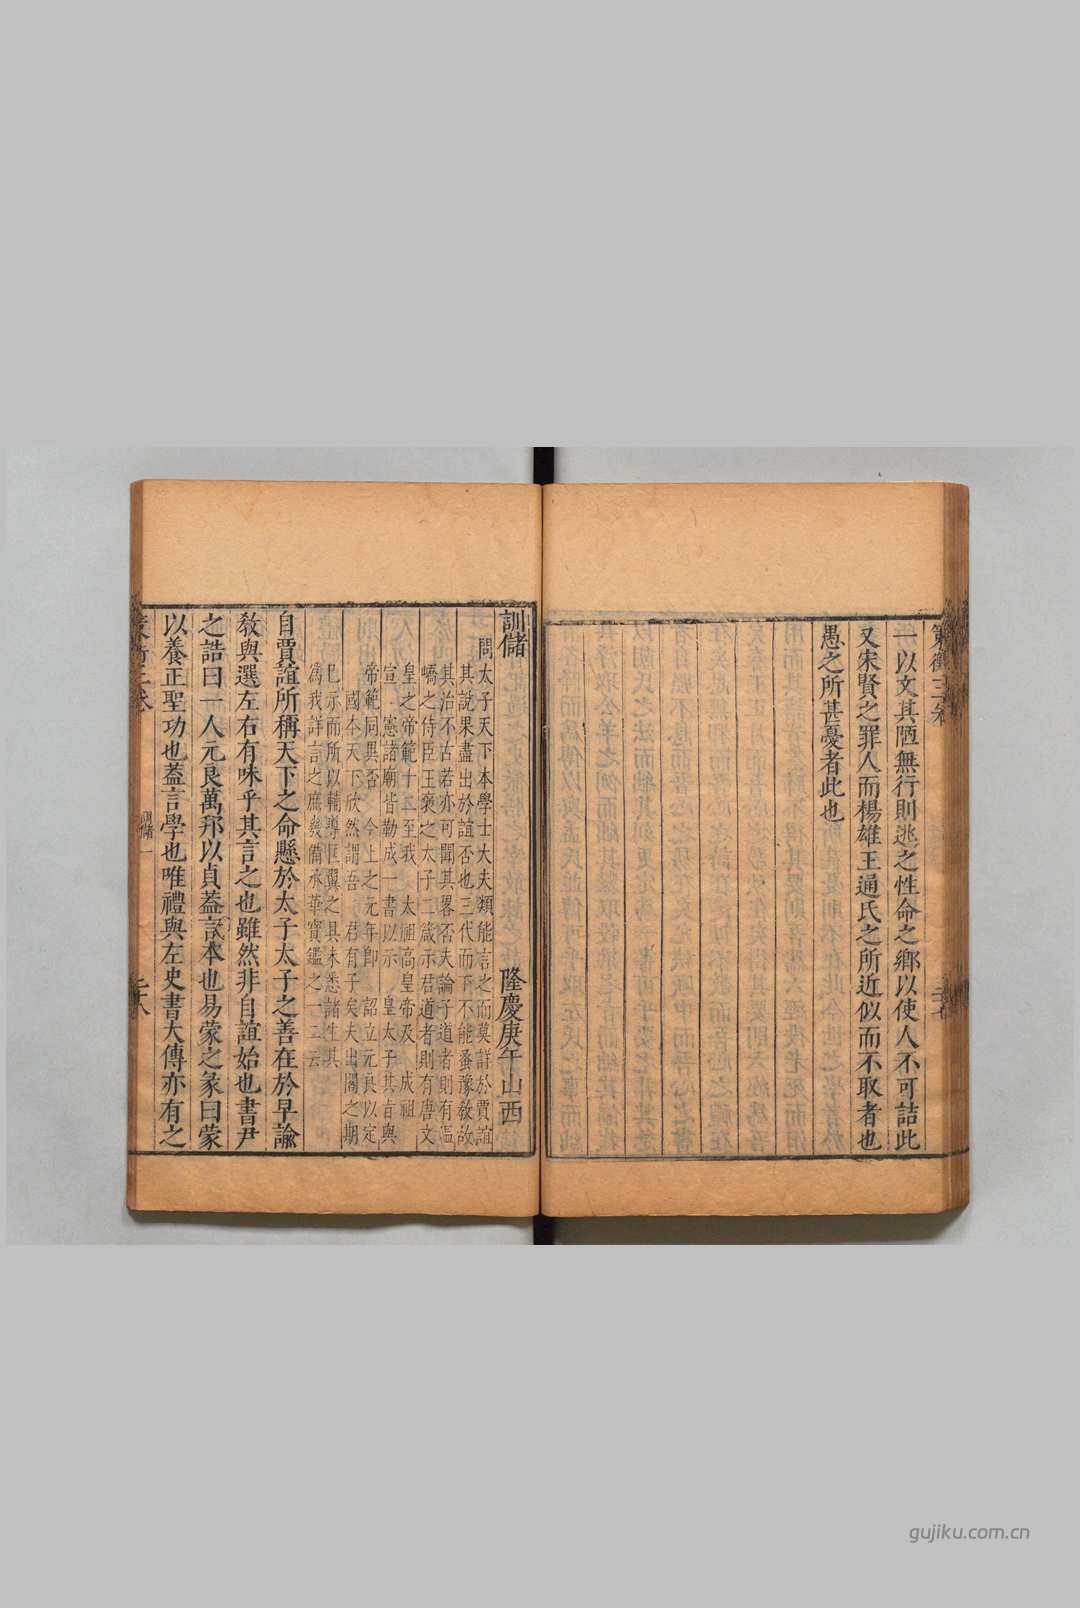 一以文其陋無行則逃之性命之鄉以使人不可詰此
又宋賢之罪人而楊雄王通氏之所近似而不取者也
愚之所甚憂者此也
訓儲 隆慶庚午山西
問太子天下本學士大夫類能言之而莫詳於賈誼
其說果盡出於誼否也三代而下不能蚤豫敎故
其治不古若亦可聞其畧否夫論子道者則有溫
嶠之侍臣王褒之太子二箴示君道者則有唐文
皇之帝範十二至我 太祖高皇帝及 成祖
宣 憲諸廟皆勒成一書以示 皇太子其旨與
帝範同異否 今上之元年卽 詔立元良以定
國今天下欣然謂吾 君有子矣夫出閣之期
已示而所以輔導匡翼之具未悉諸生其
爲我詳言之庶幾備承華寶鑑之一二云
自賈誼所稱天下之命懸於太子太子之善在於早諭
敎與選左右有味乎其言之也雖然非自誼始也書尹
之誥曰一人元良萬邦以貞蓋言本也易蒙之彖曰蒙
以養正聖功也蓋言學也唯禮與左史書大傳亦有之
訓儲一
二十八
gujiku.com.cn